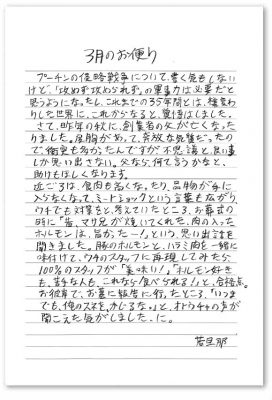 3月のお便り
プーチンの侵略戦争について、書く気もしない
けど、「攻めず攻められず」の軍事力は必要だと
思うようになったし、これまでの35年間とは、様変わり
した世界に、これからなると、覚悟はしました。
さて、昨年の秋に、創業者の父が亡くなり
ました。度胸があって、豪放な先輩だったの
で衝突も多かったんですが、不思議と良い事
しか思い出さない。父なら、何て言うかなと、
助けもほしくなります。
近ごろは、食肉も高くなったり、品物が手に
入らなくなって、ミートショックという言葉もながら、
ウチでも対策をと、考えていたところ、お葬式の
時に「昔、マサ兄が焼いてくれた、肉の入った
ホルモンは、旨かったー!」という、思い出話を
聞きました。豚のホルモンと、ハラミ肉を一緒に
味付けて、ウチのスタッフに再現してみたら
100%のスタッフが「美味い!」「ホルモン好き
も、苦手な人も、これなら食べられる!」と、合格点。
お彼岸で、お墓に報告に行ったところ、「いつま
でも、俺のスネを、かじるな。」と、オトウチャの声が
聞こえた気がしました、に。
若旦那